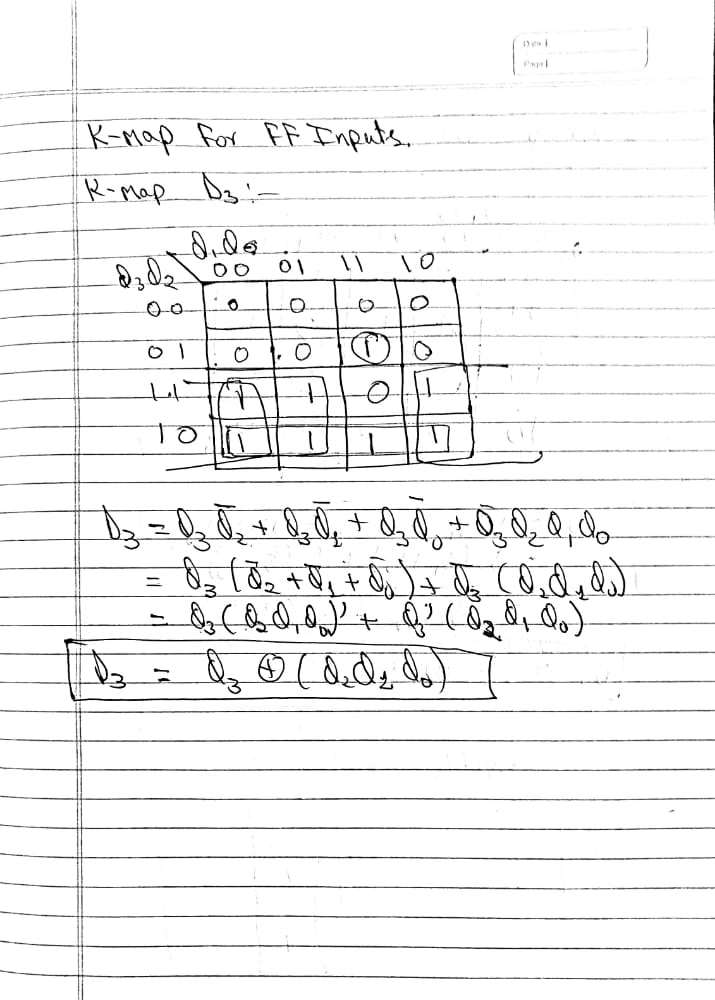 K-map For FF Inputs.
K-map D₃ :-
Q₁Q₀
Q₃Q₂ 00 01 11 10
00 0 0 0 0
01 0 0 1 0
11 1 1 0 1
10 1 1 1 1
D₃ = Q₃Q̄₂ + Q₃Q̄₁ + Q₃Q̄₀ + Q̄₃Q₂Q₁Q₀
= Q₃(Q̄₂ + Q̄₁ + Q̄₀) + Q̄₃(Q₂Q₁Q₀)
= Q₃(Q₂Q₁Q₀)' + Q₃'(Q₂Q₁Q₀)
D₃ = Q₃ ⊕ (Q₂Q₁Q₀)